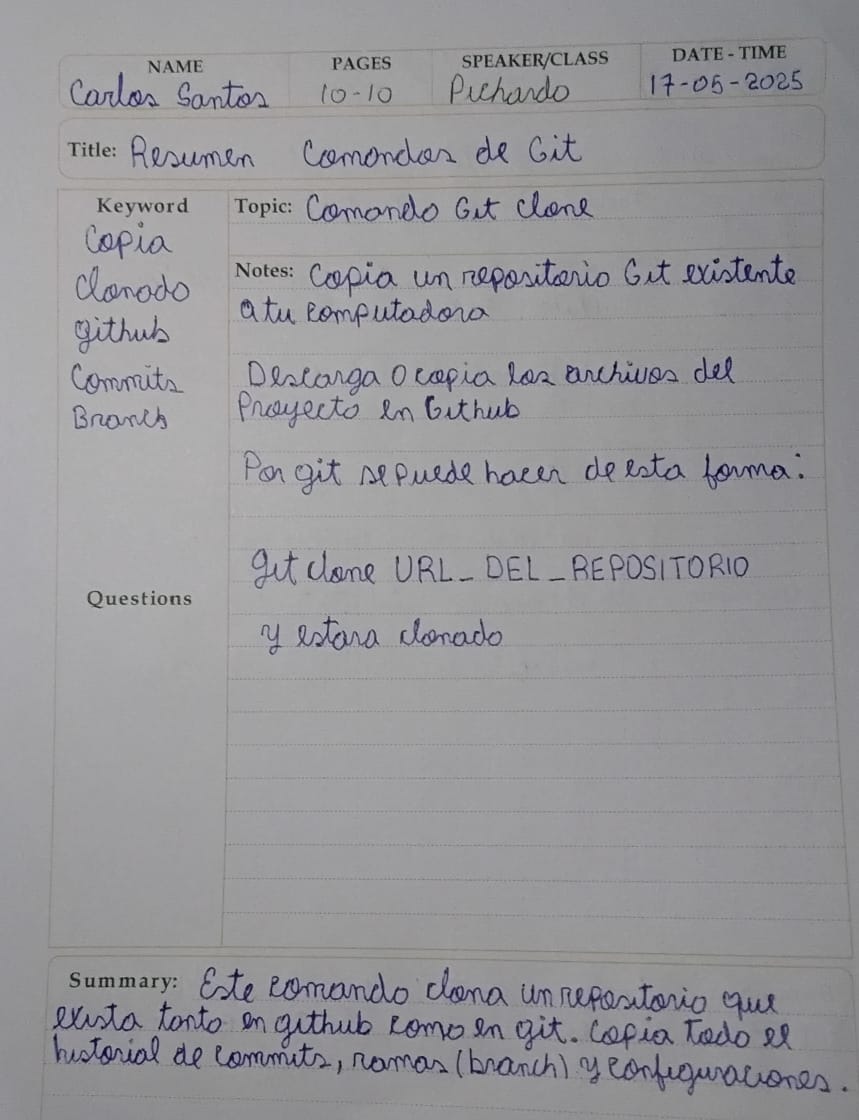 NAME PAGES SPEAKER/CLASS DATE - TIME
Carlos Santos 10-10 Pichardo 17-05-2025
Title: Resumen Comandos de Git
Keyword
Copia
Clonado
github
Commits
Branch
Questions
Topic: Comando Git clone
Notes: Copia un repositorio Git existente
a tu computadora
Descarga o copia los archivos del
Proyecto en Github
Por git se puede hacer de esta forma:
git clone URL_DEL_REPOSITORIO
y estara clonado
Summary: Este comando clona un repositorio que
exista tanto en github como en git. Copia todo el
historial de commits, ramas (branch) y configuraciones.